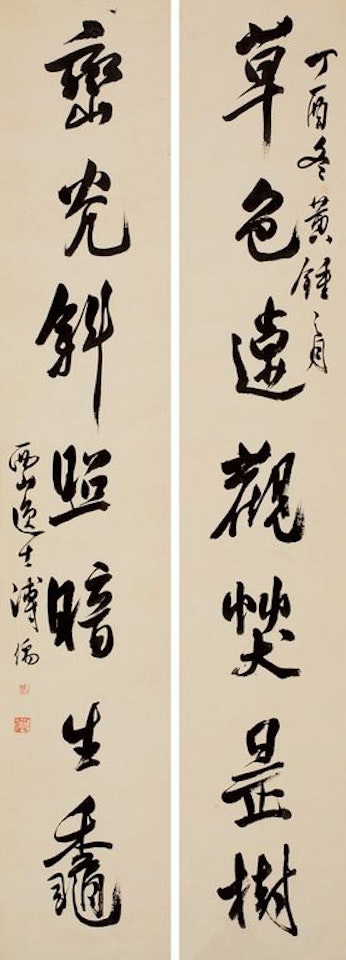 丁酉冬黃鍾之月
草色遠觀是樹
巒光斜照暗生龝
西山逸士溥儒